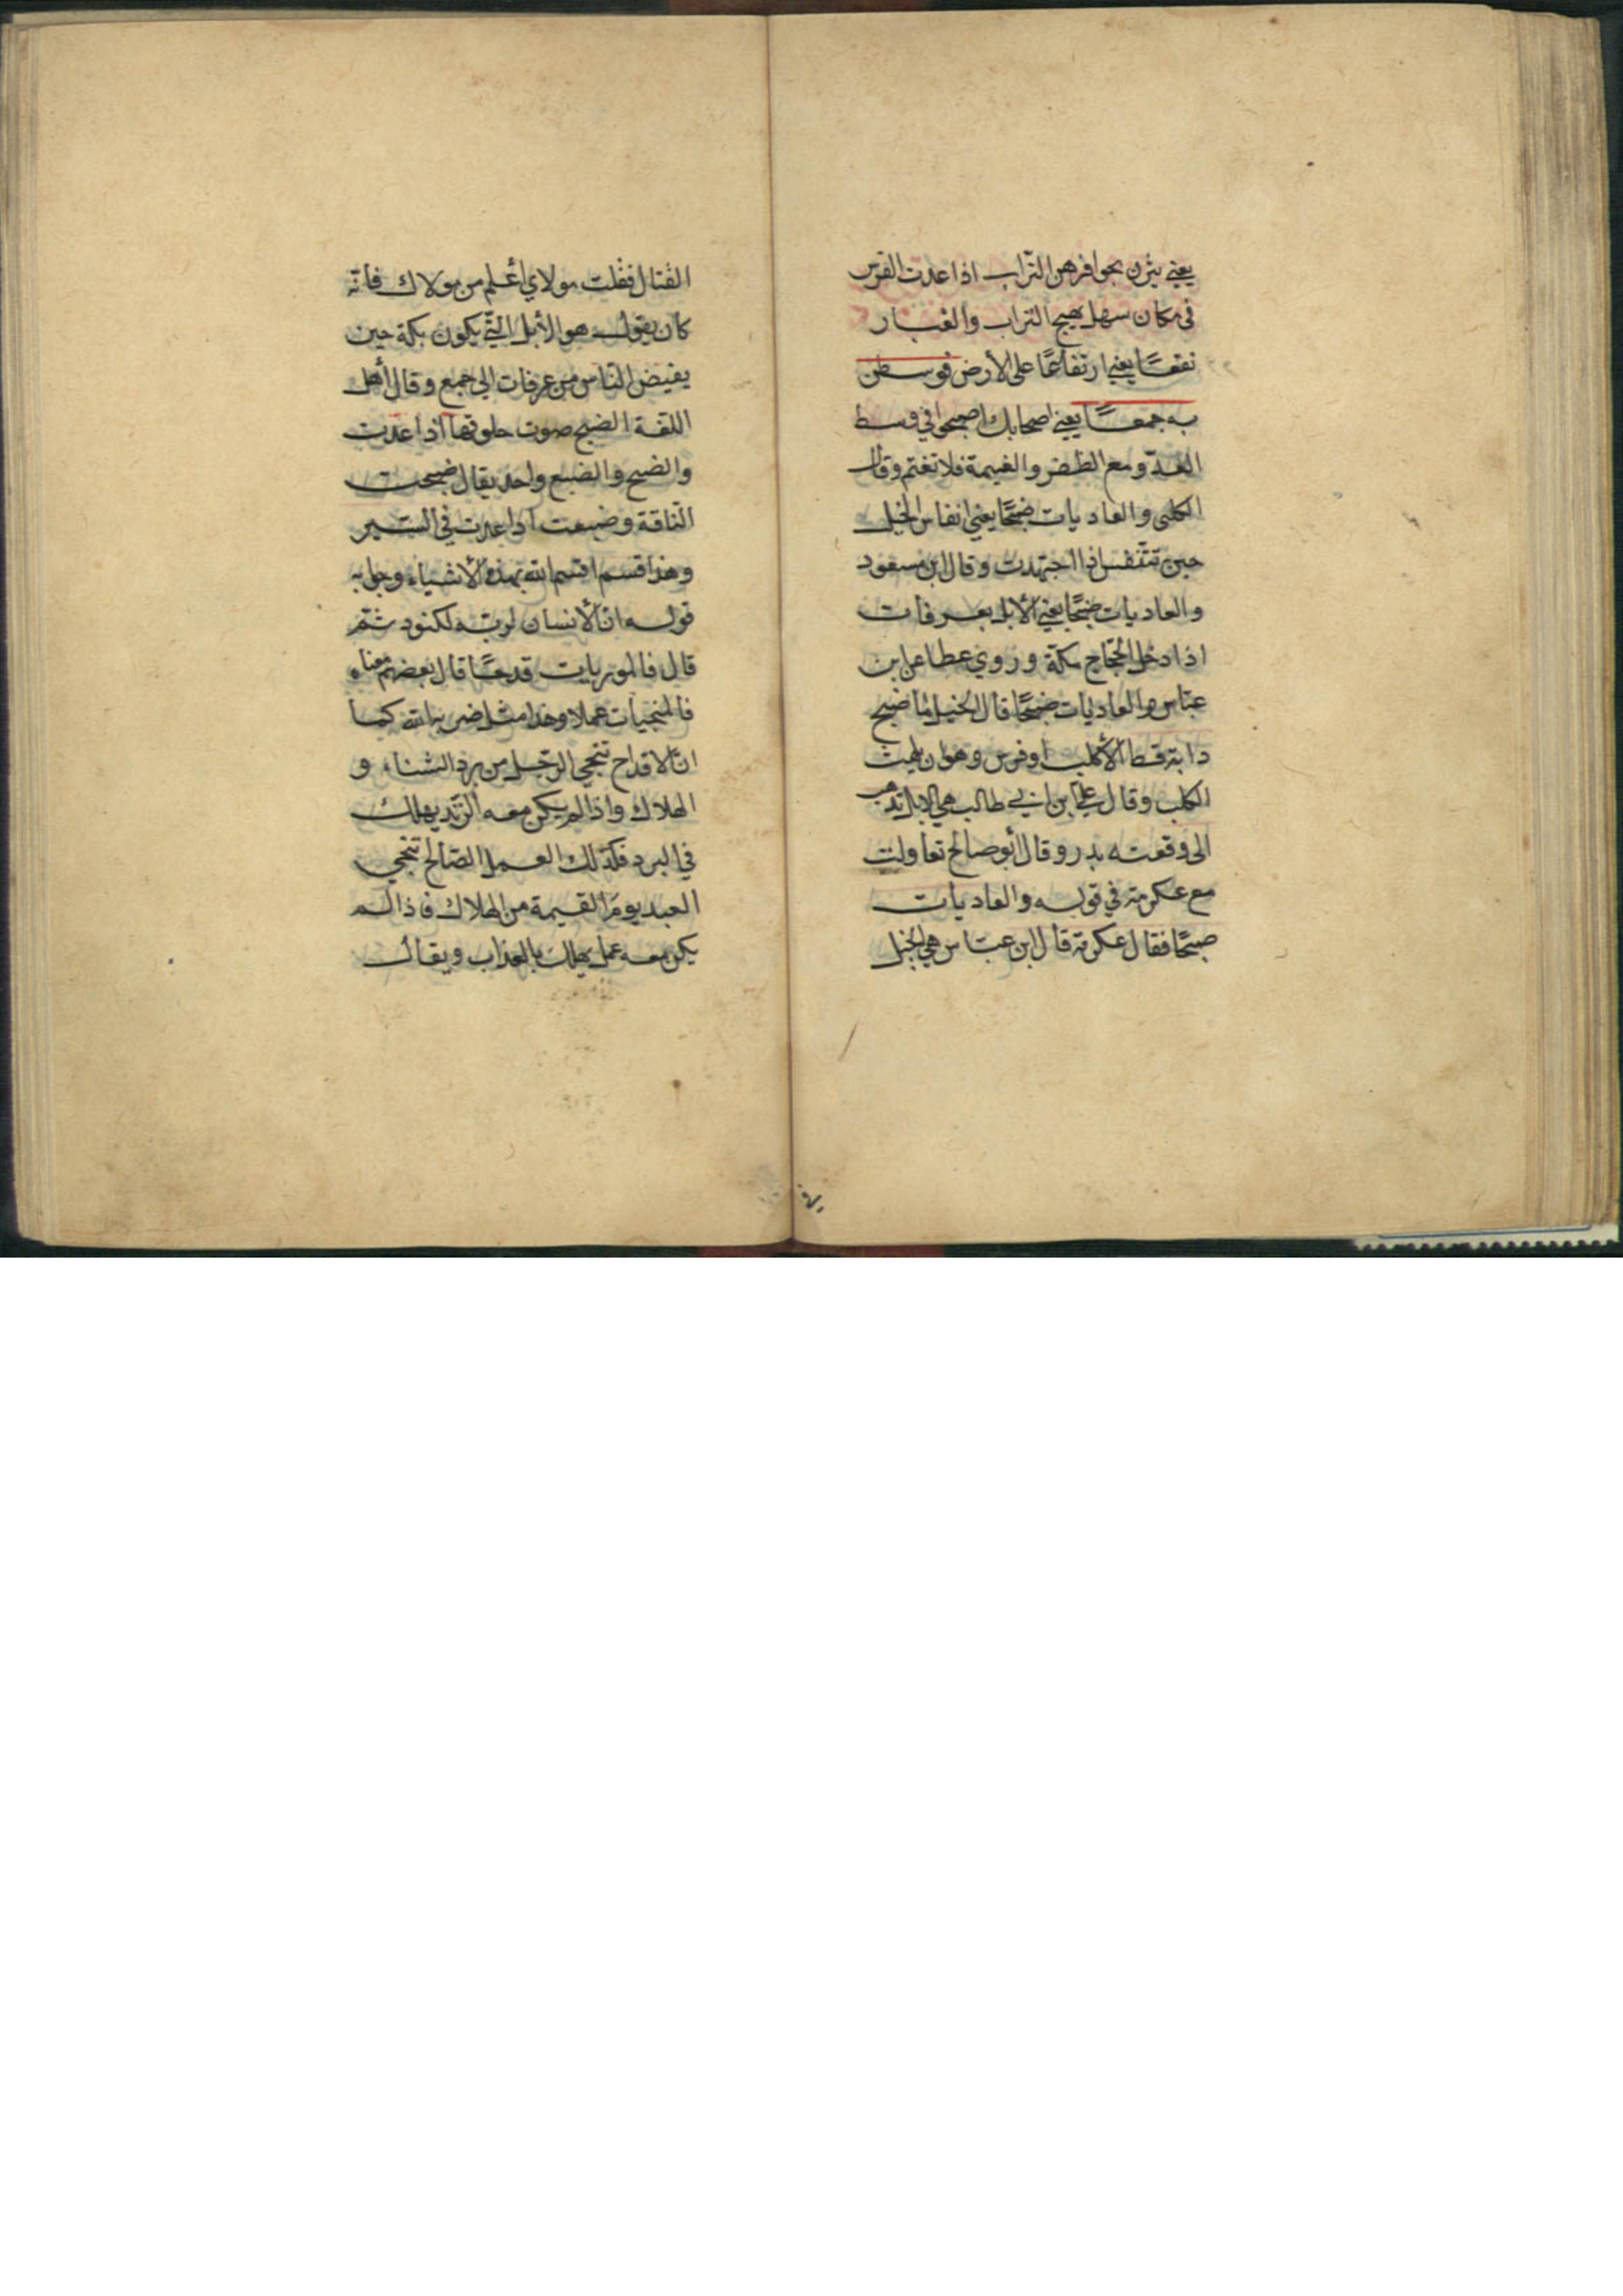 يعني يثرن بحوافرهن التراب اذا عدت الفرس
في مكان سهل يهيج التراب والغبار
نقعًا يعني ارتفاعًا على الأرض فوسطن
به جمعًا يعني اصحابك اصبحوا في وسط
العدوّ مع الظفر والغنيمة فلا تغتم وقال
الكلبى والعاديات ضبحًا يعني انفاس الخيل
حين تتنفس اذا اجتهدت وقال ابن مسعود
والعاديات ضبحًا يعني الأبل بعرفات
اذا دخل الحجّاج مكة وروي عطا عن ابن
عبّاس والعاديات ضبحًا قال الخيل ما ضبح
دابة قط الأكلب او فرس وهو ان يلهث
الكلب وقال علي بن ابي طالب هي الابل تذهب
الى وقعته بدر وقال أبو صالح تعاولت
مع عكرمة في قوله والعاديات
ضبحًا فقال عكرمة قال ابن عبّاس هي الخيل
القتال فقلت مولاي أعلم من مولاك فأنّه
كان يقول هو الأبل التّي يكون بمكة حين
يفيض النّاس من عرفات الى جمع وقال أهل
اللغة الضبح صوت حلوقها اذا عدت
والضبح والضبع واحد يقال ضبحت
النّاقة وضبعت اذا عدت في السّير
وهذا قسم اقسم الله بهذه الأشياء وجوابه
قوله انّ الأنسان لربّه لكنود ثمّ
قال فالموريات قدحًا قال بعضهم معناه
فالمنجيات عملا وهذا مثل ضربه الله كما
انّ الاقداح تنجي الرّجل من برد الشتاء و
الهلاك واذا لم يكن معه الزّند يهلك
في البرد فكذلك العمل الصّالح تنجي
العبد يوم القيمة من الهلاك فاذا لم
يكن معه عمل يهلك بالعذاب ويقال